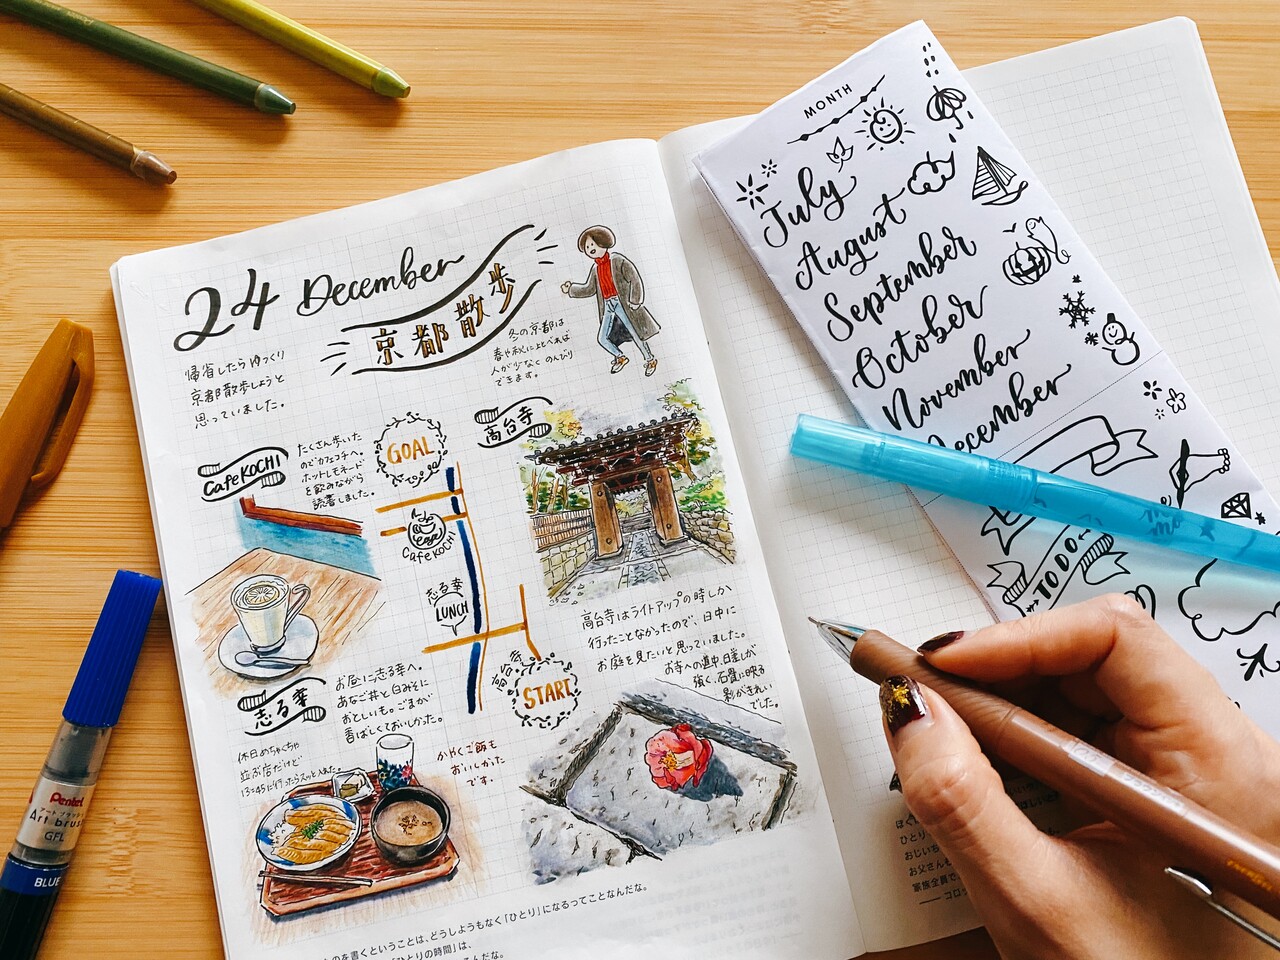 24 December
京都散歩
帰省したらゆっくり
京都散歩しようと
思っていました。
冬の京都は
春や秋に比べれば
人が少なく のんびり
できます。
Cafe KOCHI
たくさん歩いた
のでカフェコチへ。
ホットレモネード
を飲みながら
読書しました。
GOAL
高台寺
Cafe KOCHI
志る幸
LUNCH
START
高台寺はライトアップの時しか
行ったことなかったので、日中に
お庭を見たいと思っていました。
お寺への道中、日差しが
強く、石畳に映る
影がきれい
でした。
志る幸
お昼に志る幸へ。
あなご丼と白みそに
おとしいも。ごまが
香ばしくておいしかった。
休日めちゃくちゃ
並ぶ店だけど
13:45に行ったらスッと入れた。
かやくご飯も
おいしかった
です。
ものを書くということは、どうしようもなく「ひとり」になるってことなんだな。
「ひとりの時間」は、
んだな。
MONTH
July
August
September
October
November
December
TO DO
ひとり
おじいち
お父さんも
家族全員で、
Pentel
アートブラッシュ
Art brush
GFL
BLUE